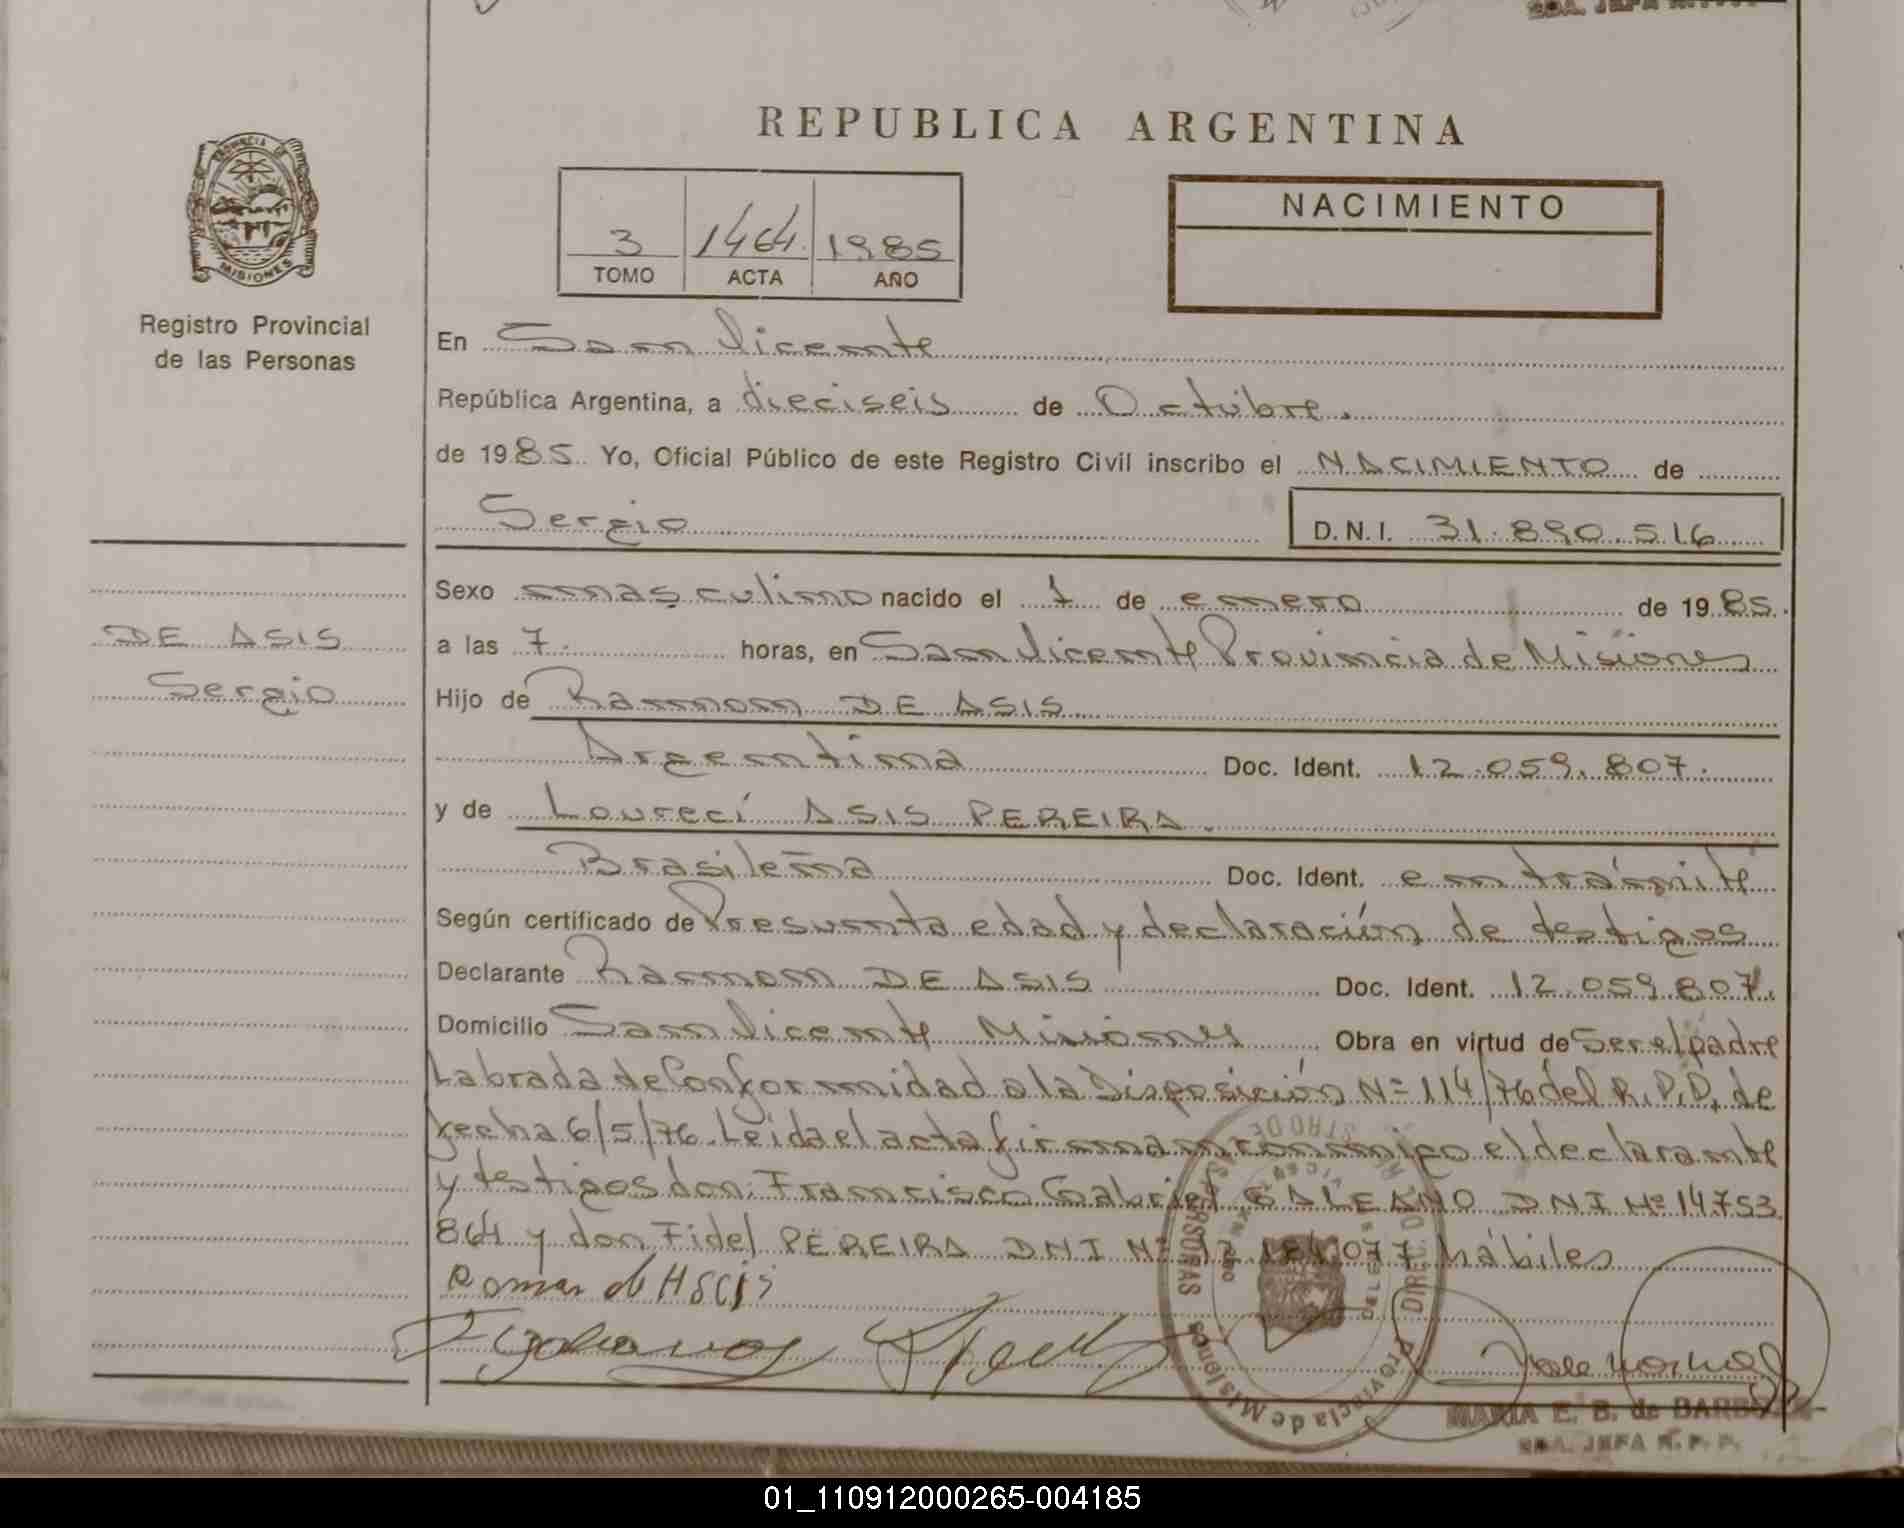 SRA. JEFA R.P.P.
REPUBLICA ARGENTINA
PROVINCIA DE
MISIONES
Registro Provincial
de las Personas
3 1464. 1985
TOMO ACTA AÑO
NACIMIENTO
En San Vicente
República Argentina, a dieciseis de Octubre.
de 1985 Yo, Oficial Público de este Registro Civil inscribo el NACIMIENTO de
Sergio D.N.I. 31.890.516
Sexo masculino nacido el 1 de enero de 1985.
a las 7. horas, en San Vicente Provincia de Misiones
Hijo de Ramon DE ASIS
Argentina Doc. Ident. 12.059.807.
y de Loureci ASIS PEREIRA.
Brasileña Doc. Ident. en trámite
Según certificado de Presunta edad y declaración de testigos
Declarante Ramon DE ASIS Doc. Ident. 12.059.807.
Domicilio San Vicente Misiones Obra en virtud de Ser el padre
Labrada de Conformidad a la Disposición Nº 114/76 del R.P.P. de
fecha 6/5/76. Leida el acta firman conmigo el declarante
y testigos don: Francisco Gabriel GALEANO DNI Nº 14.753
864 y don Fidel PEREIRA DNI Nº 077 hábiles
DE ASIS
Sergio
Provincia de Misiones
MARIA E. B. de
SRA. JEFA R. P. P.
01_110912000265-004185